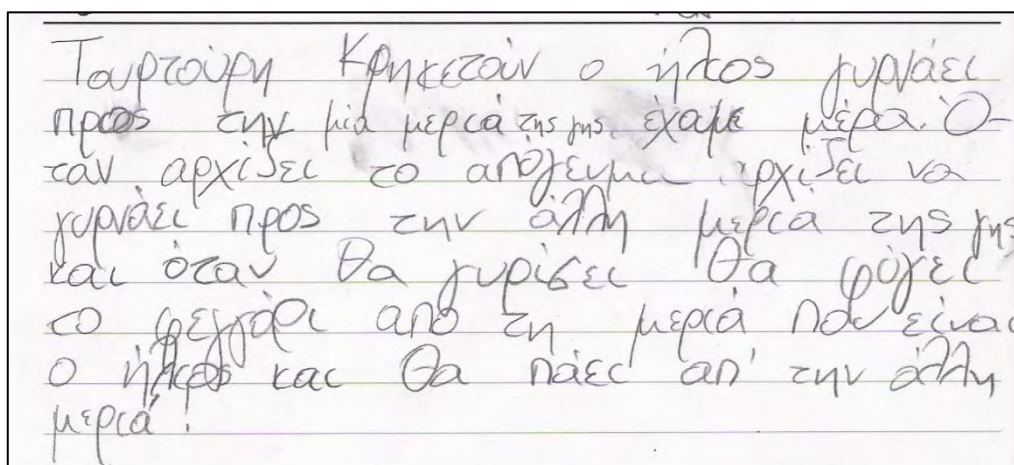 Ταυρτούρη Κρηκετάν ο ήλιος γυρνάει
προς την μία μεριά της γης έχαμε μέρα. Ό-
ταν αρχίζει το απόγευμα αρχίζει να
γυρνάει προς την άλλη μεριά της γης
και όταν θα γυρίσει θα φύγει
το φεγγάρι από τη μεριά που είναι
ο ήλιος και θα πάει απ' την άλλη
μεριά!